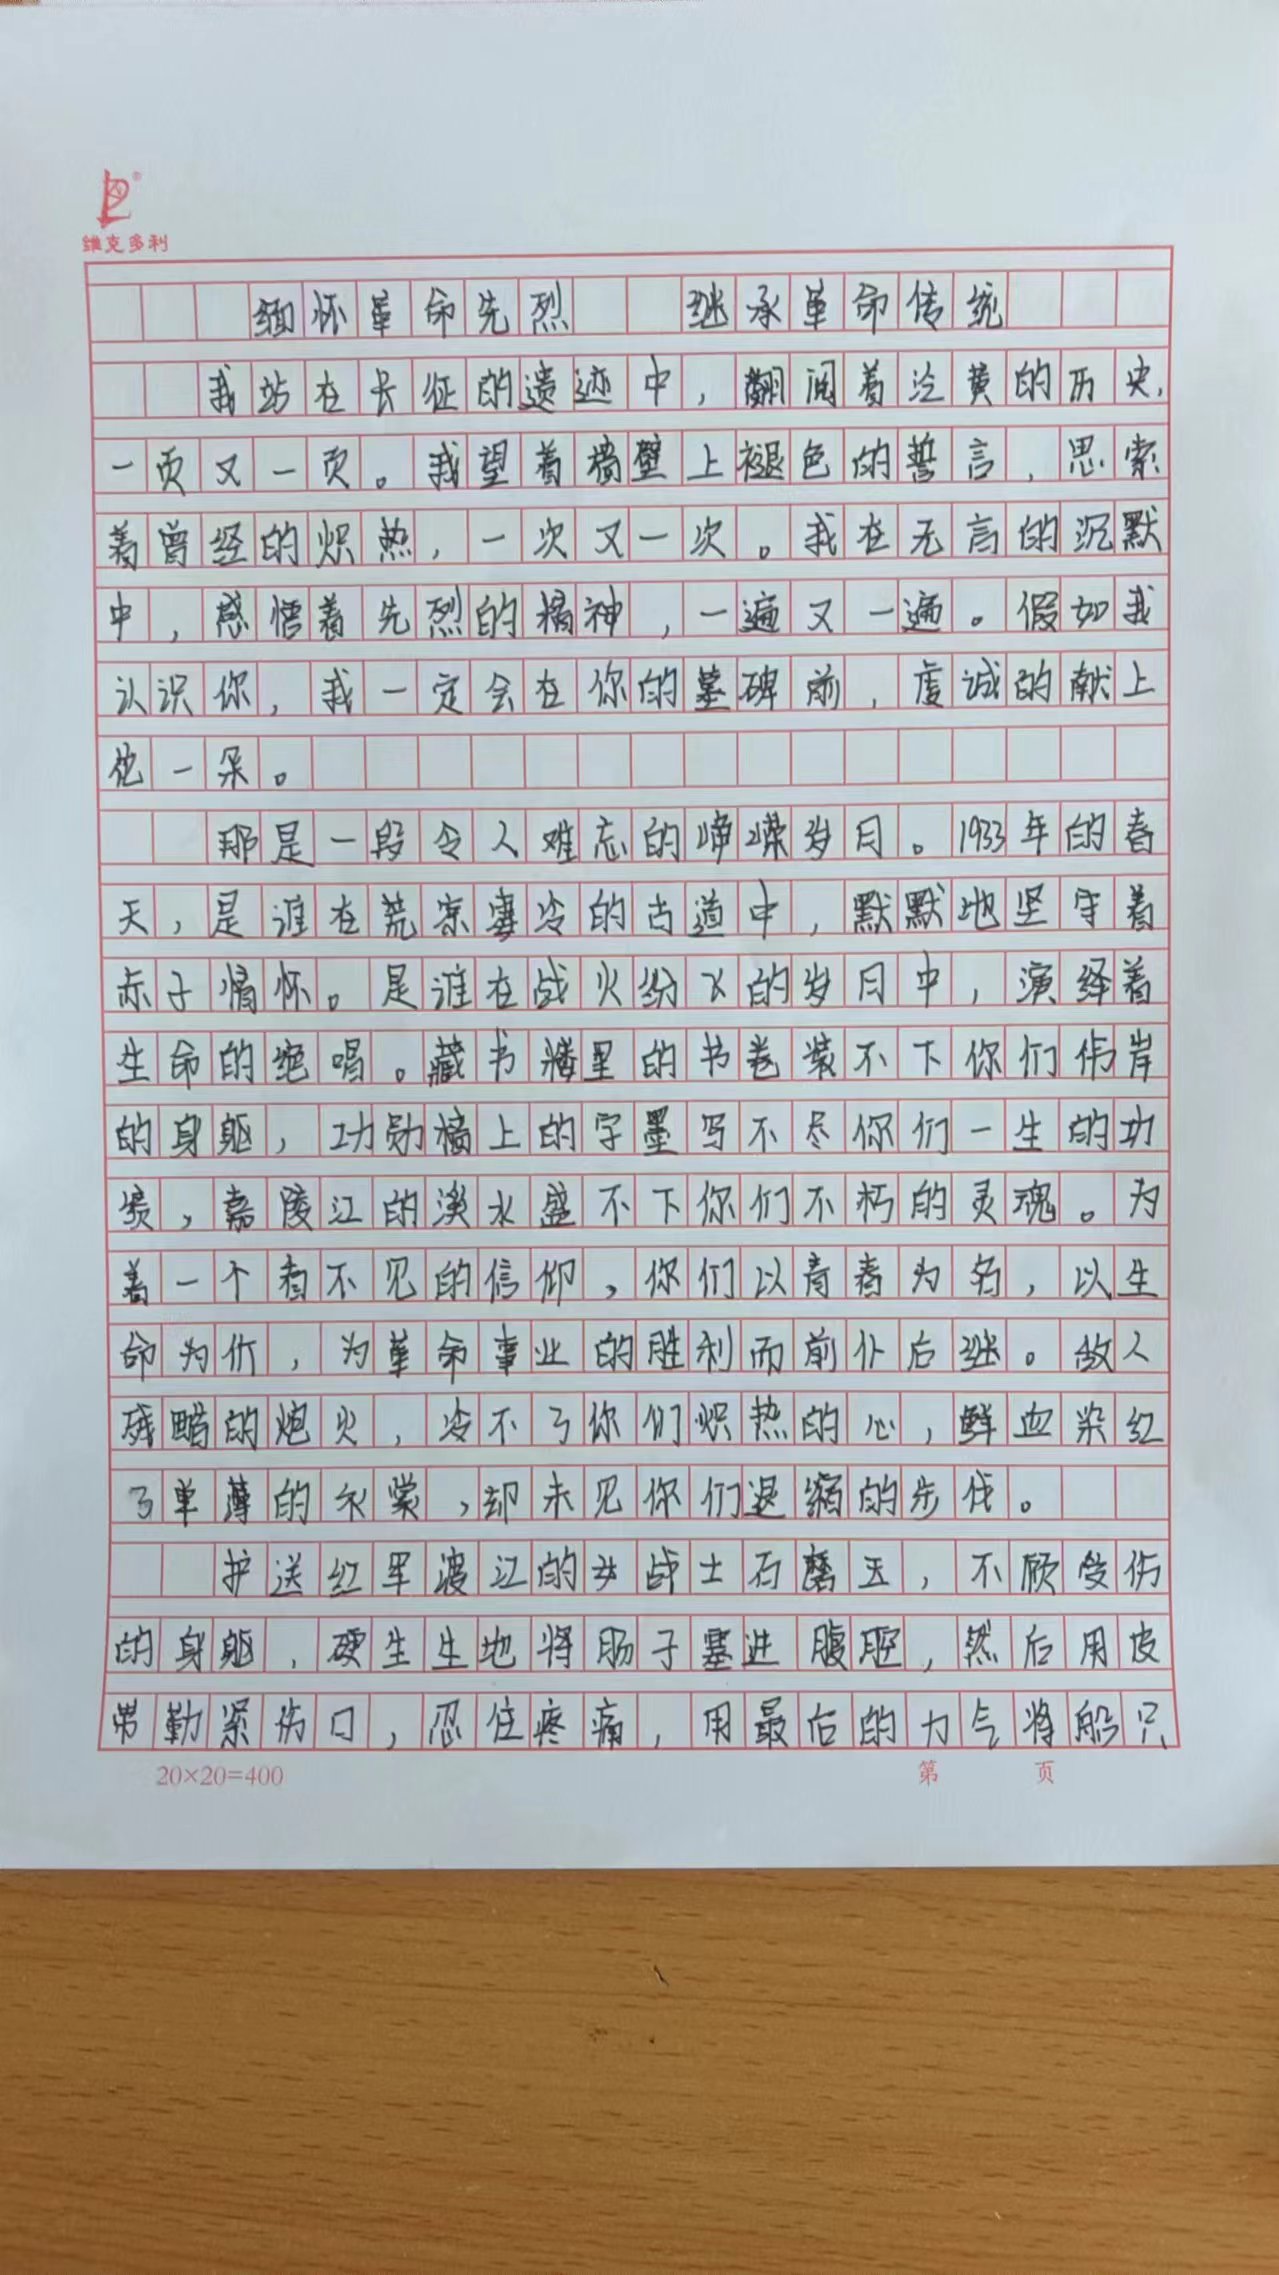 维克多利
缅怀革命先烈　　继承革命传统
我站在长征的遗迹中，翻阅着泛黄的历史，
一页又一页。我望着墙壁上褪色的誓言，思索
着曾经的炽热，一次又一次。我在无言的沉默
中，感悟着先烈的精神，一遍又一遍。假如我
认识你，我一定会在你的墓碑前，虔诚的献上
花一朵。
那是一段令人难忘的峥嵘岁月。1933年的春
天，是谁在荒凉凄冷的古道中，默默地坚守着
赤子情怀。是谁在战火纷飞的岁月中，演绎着
生命的绝唱。藏书楼里的书卷装不下你们伟岸
的身躯，功勋墙上的字墨写不尽你们一生的功
绩，嘉陵江的溪水盛不下你们不朽的灵魂。为
着一个看不见的信仰，你们以青春为名，以生
命为价，为革命事业的胜利而前仆后继。敌人
残酷的炮火，冷不了你们炽热的心，鲜血染红
了单薄的衣裳，却未见你们退缩的步伐。
护送红军渡江的女战士石磨玉，不顾受伤
的身躯，硬生生地将肠子塞进腹腔，然后用皮
带勒紧伤口，忍住疼痛，用最后的力气将船只
20×20=400　第　页